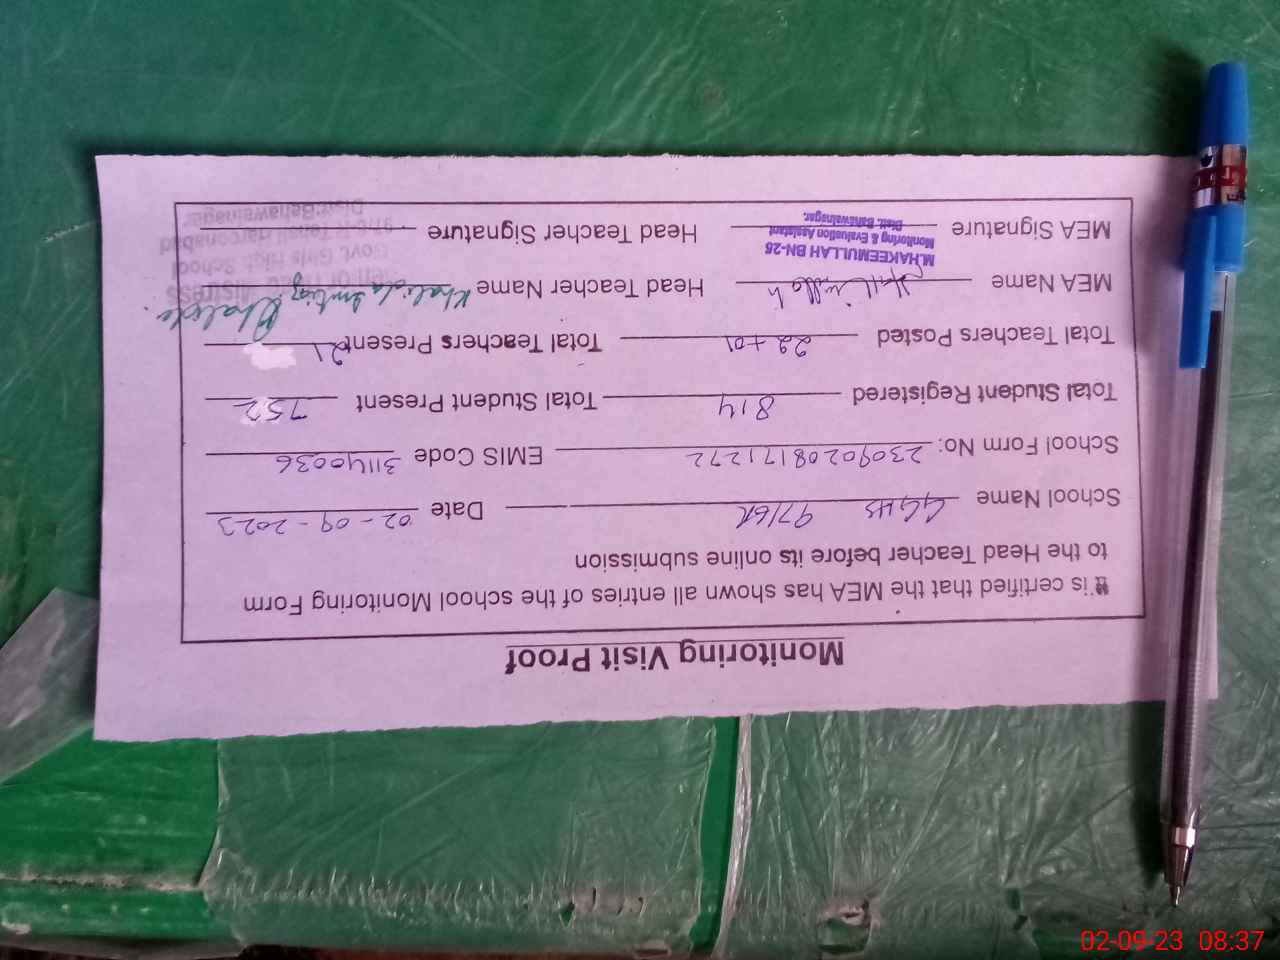 Monitoring Visit Proof
It is certified that the MEA has shown all entries of the school Monitoring Form
to the Head Teacher before its online submission
School Name GGHS 97/6R Date 02-09-2023
School Form No: 23090208171272 EMIS Code 31140036
Total Student Registered 814 Total Student Present 752
Total Teachers Posted 22+01 Total Teachers Present 21
MEA Name Head Teacher Name Khalida Imtiaz Khalida
M.HAKEEMULLAH BN-25
Monitoring & Evaluation Assistant
Distt. Bahawalnagar.
MEA Signature Head Teacher Signature
Govt. Girls High School
97/6-R Tehsil Haroonabad
Distt: Bahawalnagar
02-09-23 08:37